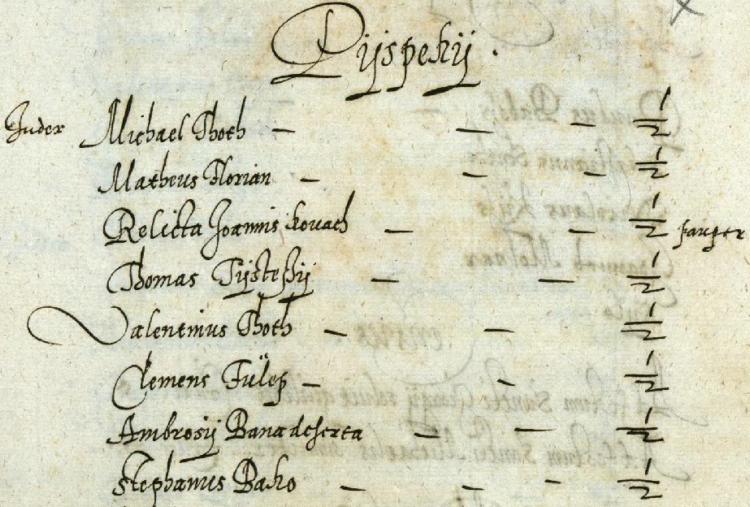 Dyspehÿ.
Judex Michael Thoth — — — ½
Matheus Florian — — — ½
Relicta Joannis Kovach — — ½ pauper
Thomas — — ½
Valentinus Thoth — — ½
Clemens Fülep — — ½
Ambrosÿ Bana deserta — — ½
Stephanus Bako — — — ½